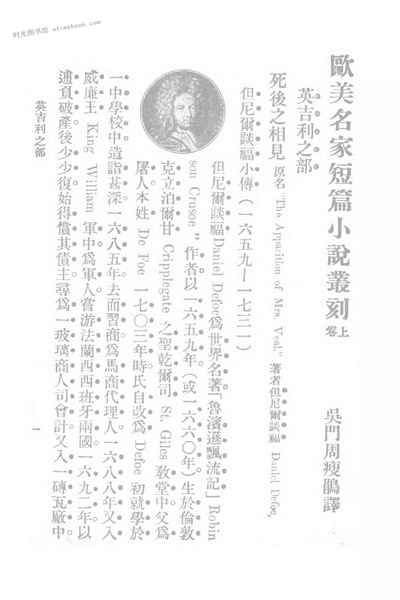 时光图书馆 etimebook.com
歐美名家短篇小說叢刻 卷上
吳門周瘦鵑譯
英吉利之部
死後之相見 原名 "The Apparition of Mrs. Veal." 著者但尼爾談福 Daniel Defoe
但尼爾談福小傳（一六五九—一七三一）
但尼爾談福 Daniel Defoe 爲世界名著「魯濱遜飄流記」 Robin
son Crusoe" 作者以一六五九年（或一六六〇年）生於倫敦
克立泊爾甘 Cripplegate 之聖乾爾司 St. Giles 敎堂中父爲
屠人本姓 De Foe 一七〇三年時氏自改爲 Defoe 初就學於
一中學校中造詣甚深一六八五年去而習商爲馬商代理人一六八八年又入
威廉王 King William 軍中爲軍人嘗游法蘭西西班牙兩國一六九二年以
逋負破產後少少復始得償其債主尋爲一玻璃商人司會計又入一磚瓦廠中
英吉利之部
一